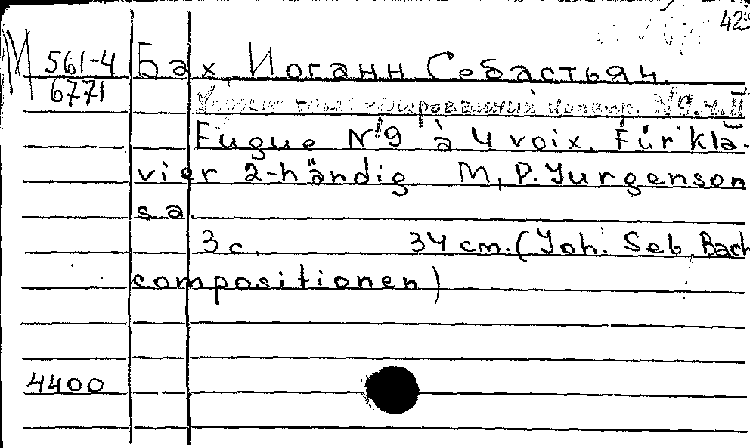 42
М 561-4 Бах, Иоганн Себастьян.
6771
№9, ч. II
Fugue №9 à 4 voix. Für kla-
vier 2-händig M, P. Jurgenson
s a.
3 c. 34 cm. (Joh. Seb. Bach
compositionen)
4400